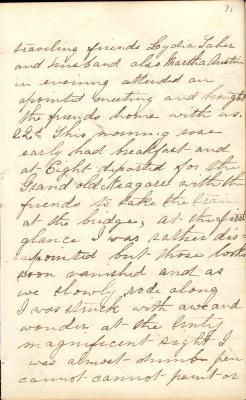 31
traveling friends Lydia Taber
and husband also Martha Austin
in evening attended an
apointed meeting and brought
the friends home with us.
22d. This morning rose
early had breakfast and
at Eight departed for the
Grand old Neagara with the
friends to take the train
at the bridge, at the first
glance I was rather dis-
apointed but those looks
soon vanished and as
we slowly rode along
I was struck with awe and
wonder at the truly
magnificent sight I
was almost dumb pen
cannot cannot paint or